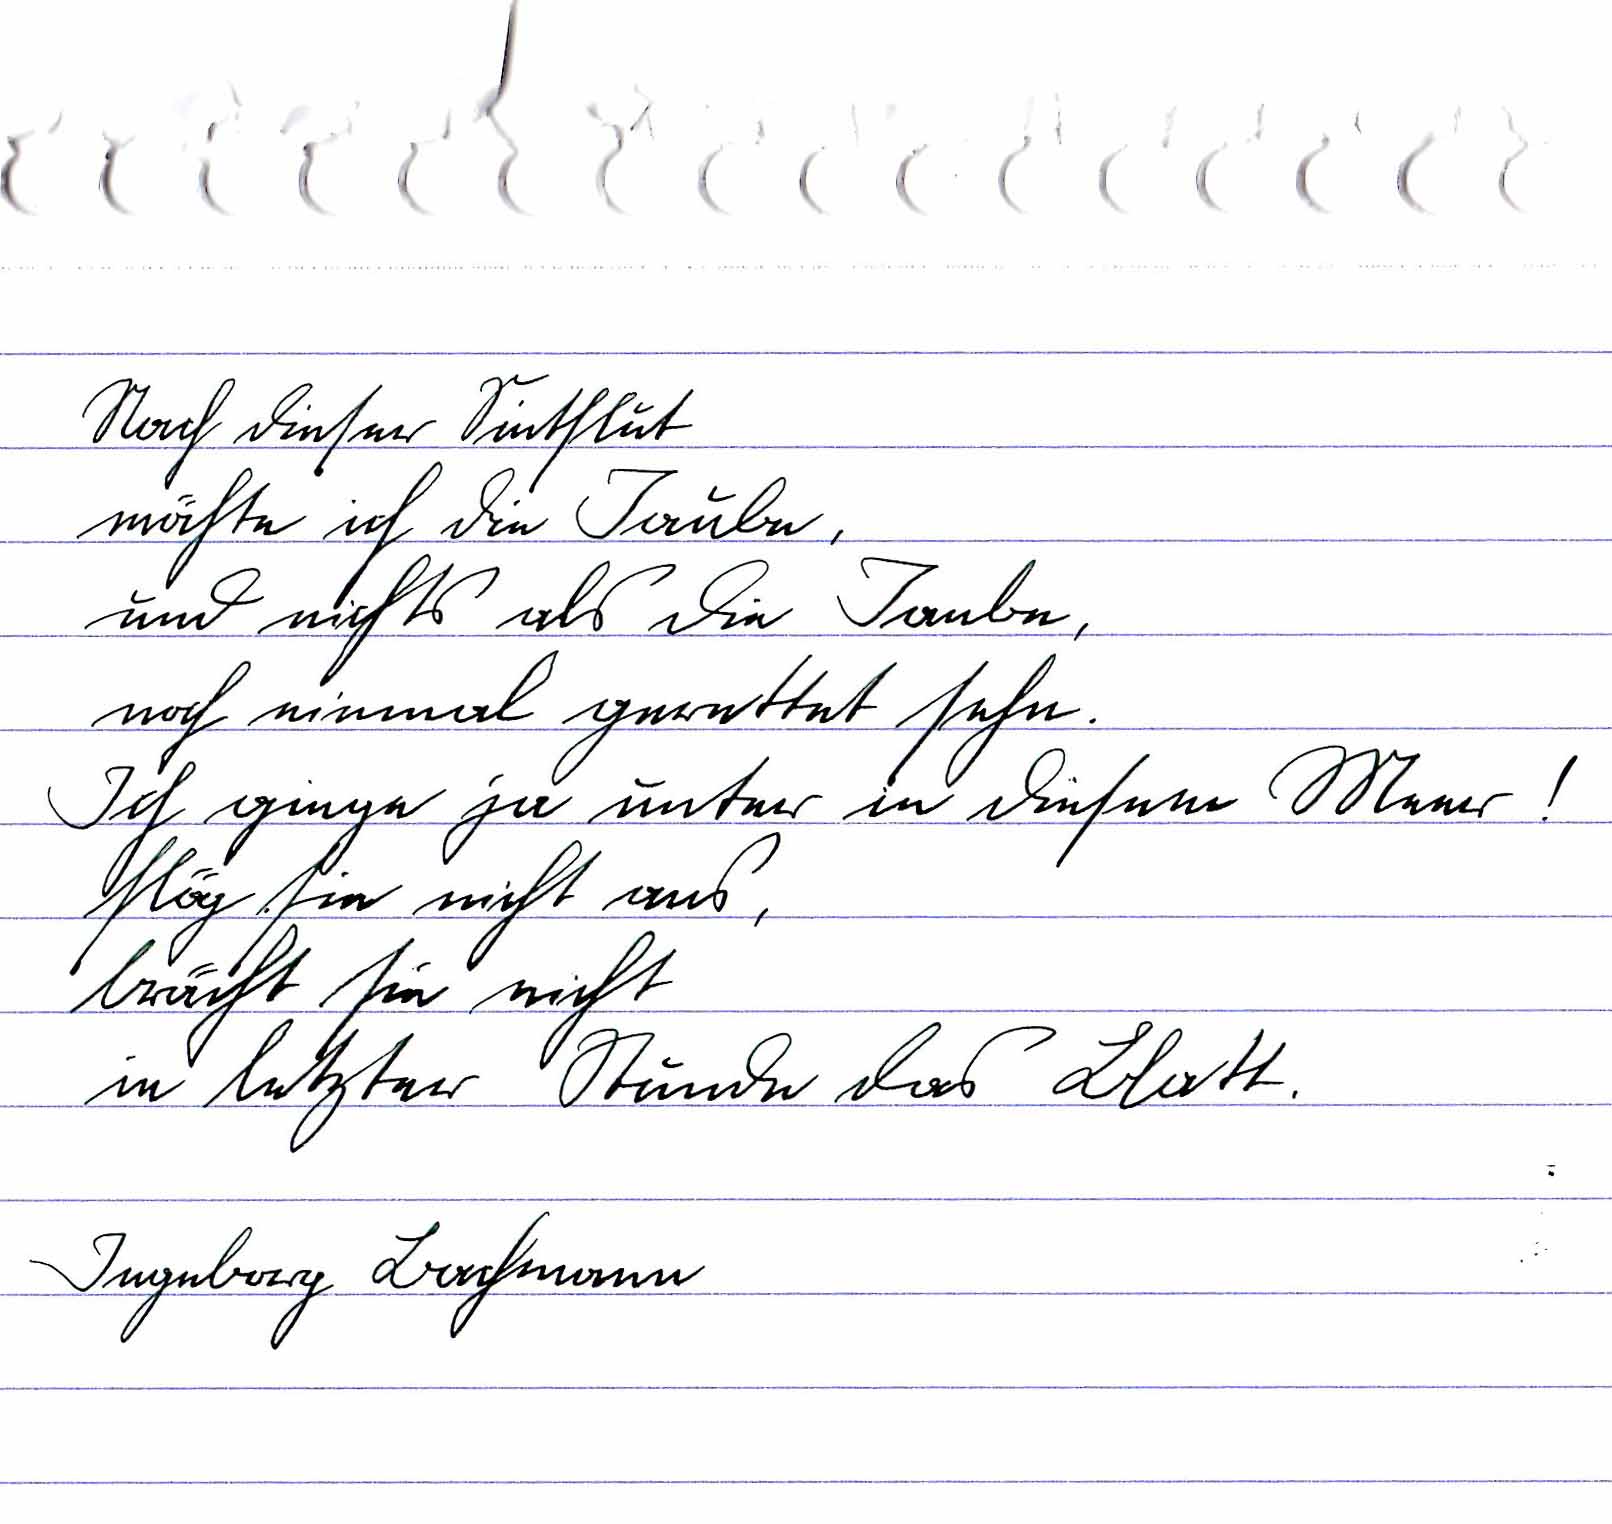 Nach dieser Sintflut
möchte ich die Taube,
und nichts als die Taube,
noch einmal gerettet sehn.
Ich ginge ja unter in diesem Meer!
flög sie nicht aus,
brächt sie nicht
in letzter Stunde das Blatt.
Ingeborg Bachmann